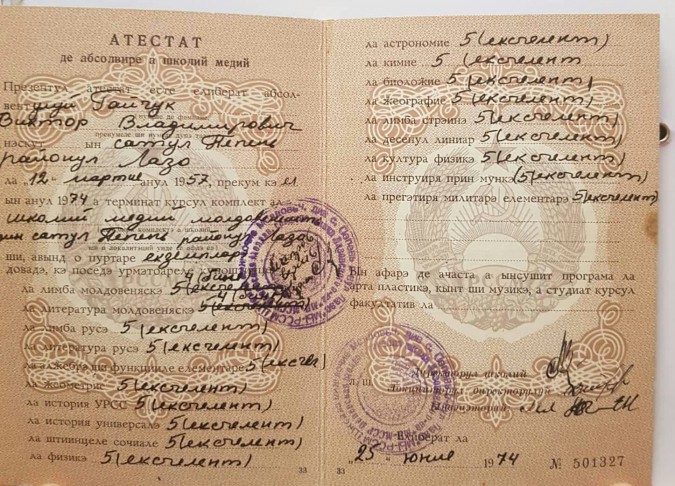 АТЕСТАТ
де абсолвире а школий медий
Презентул атестат есте елиберат абсол-
вентулуй Гайчук
Виктор Владимирович
нэскут ын сатул Пепень
районул Лазо
ла „12" мартие анул 1957, прекум кэ ел
ын анул 1974 а терминат курсул комплект ал
школий медий молдовенешть
дин сатул Пепень районул Лазо
ши, авынд о пуртаре екземпларэ
довадэ, кэ поседэ урмэтоареле
ла лимба молдовеняскэ 5(ексчелент)
ла литература молдовеняскэ
ла лимба русэ 5(ексчелент)
ла литература русэ 5(ексчелент)
ла алӂебрэ ши функцииле елементаре 5(ексчел)
ла ӂеометрие 5(ексчелент)
ла история УРСС 5(ексчелент)
ла история универсалэ 5(ексчелент)
ла штиинцеле сочиале 5(ексчелент)
ла физикэ 5(ексчелент)
33
ла астрономие 5(ексчелент)
ла химие 5 (ексчелент
ла биоложие 5(ексчелент)
ла жеографие 5(ексчелент)
ла лимба стрэинэ 5(ексчелент)
ла десенул линиар 5(ексчелент)
ла култура физикэ 5(ексчелент)
ла инструиря прин мункэ (5(ексчелент)
ла прегэтиря милитарэ елементарэ 5(ексчелент)
Ын афарэ де ачаста а ынсушит програма ла
арта пластикэ, кынт ши музикэ, а студиат курсул
факултатив ла
Директорул школий
Локцииторул директорулуй
Ынвэцэторий
Л. Ш.
Елиберат ла
„25" юние 1974 № 501327
33